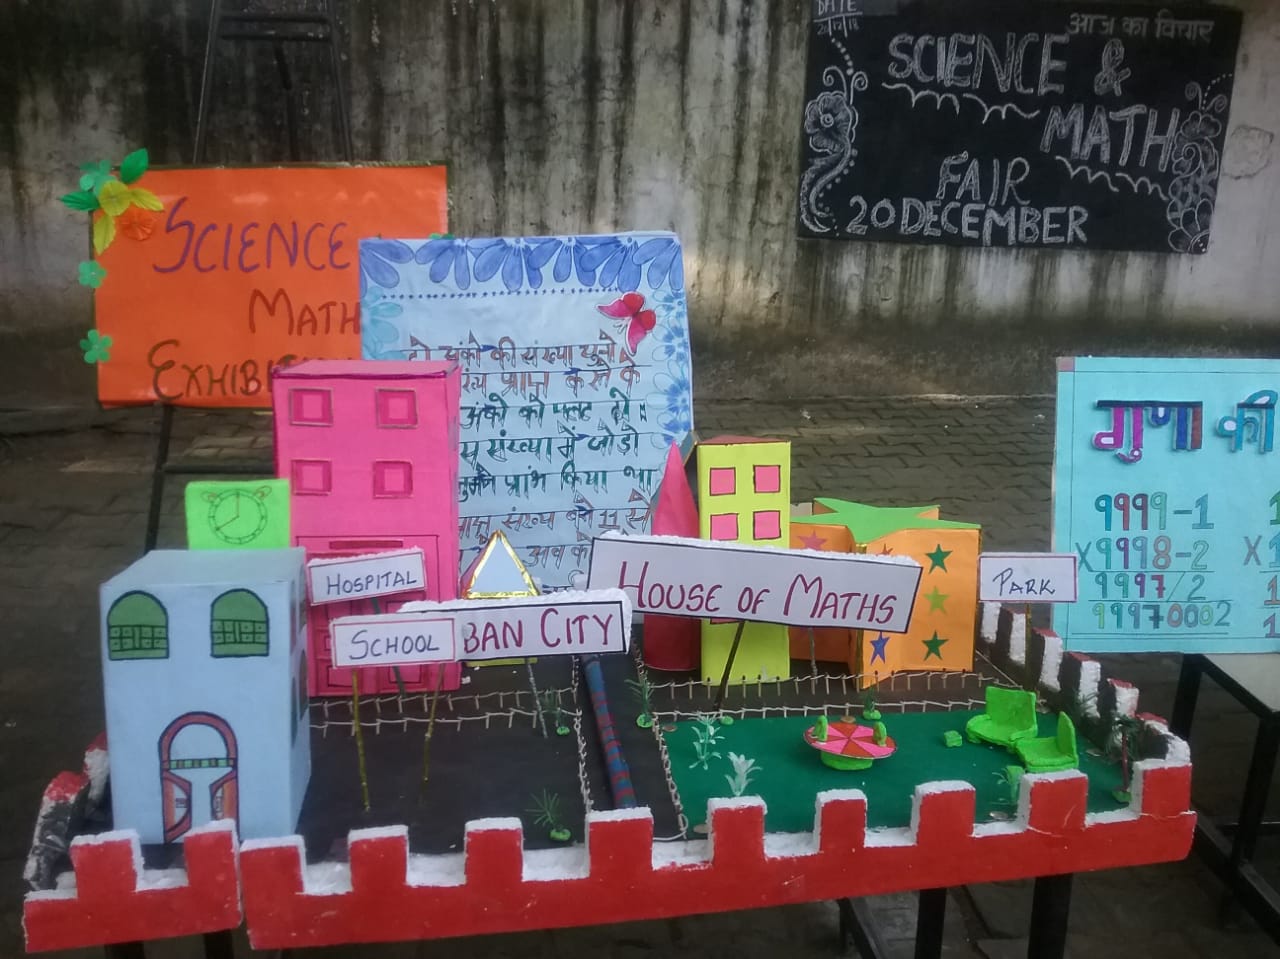 DATE
आज का विचार
SCIENCE &
MATH
FAIR
20 DECEMBER
SCIENCE
MATH
दो अंको की संख्या चुने
प्राप्त करने के
अंको को पलट दो।
संख्या में जोड़ो
प्रांभ किया था
संख्य को 11 से
अब के
HOSPITAL
SCHOOL
BAN CITY
HOUSE OF MATHS
PARK
गुणा की
9999-1
X9998-2
9997/2
99970002
X